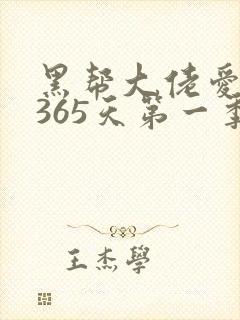 黑帮大佬爱
365天第一季
王杰學